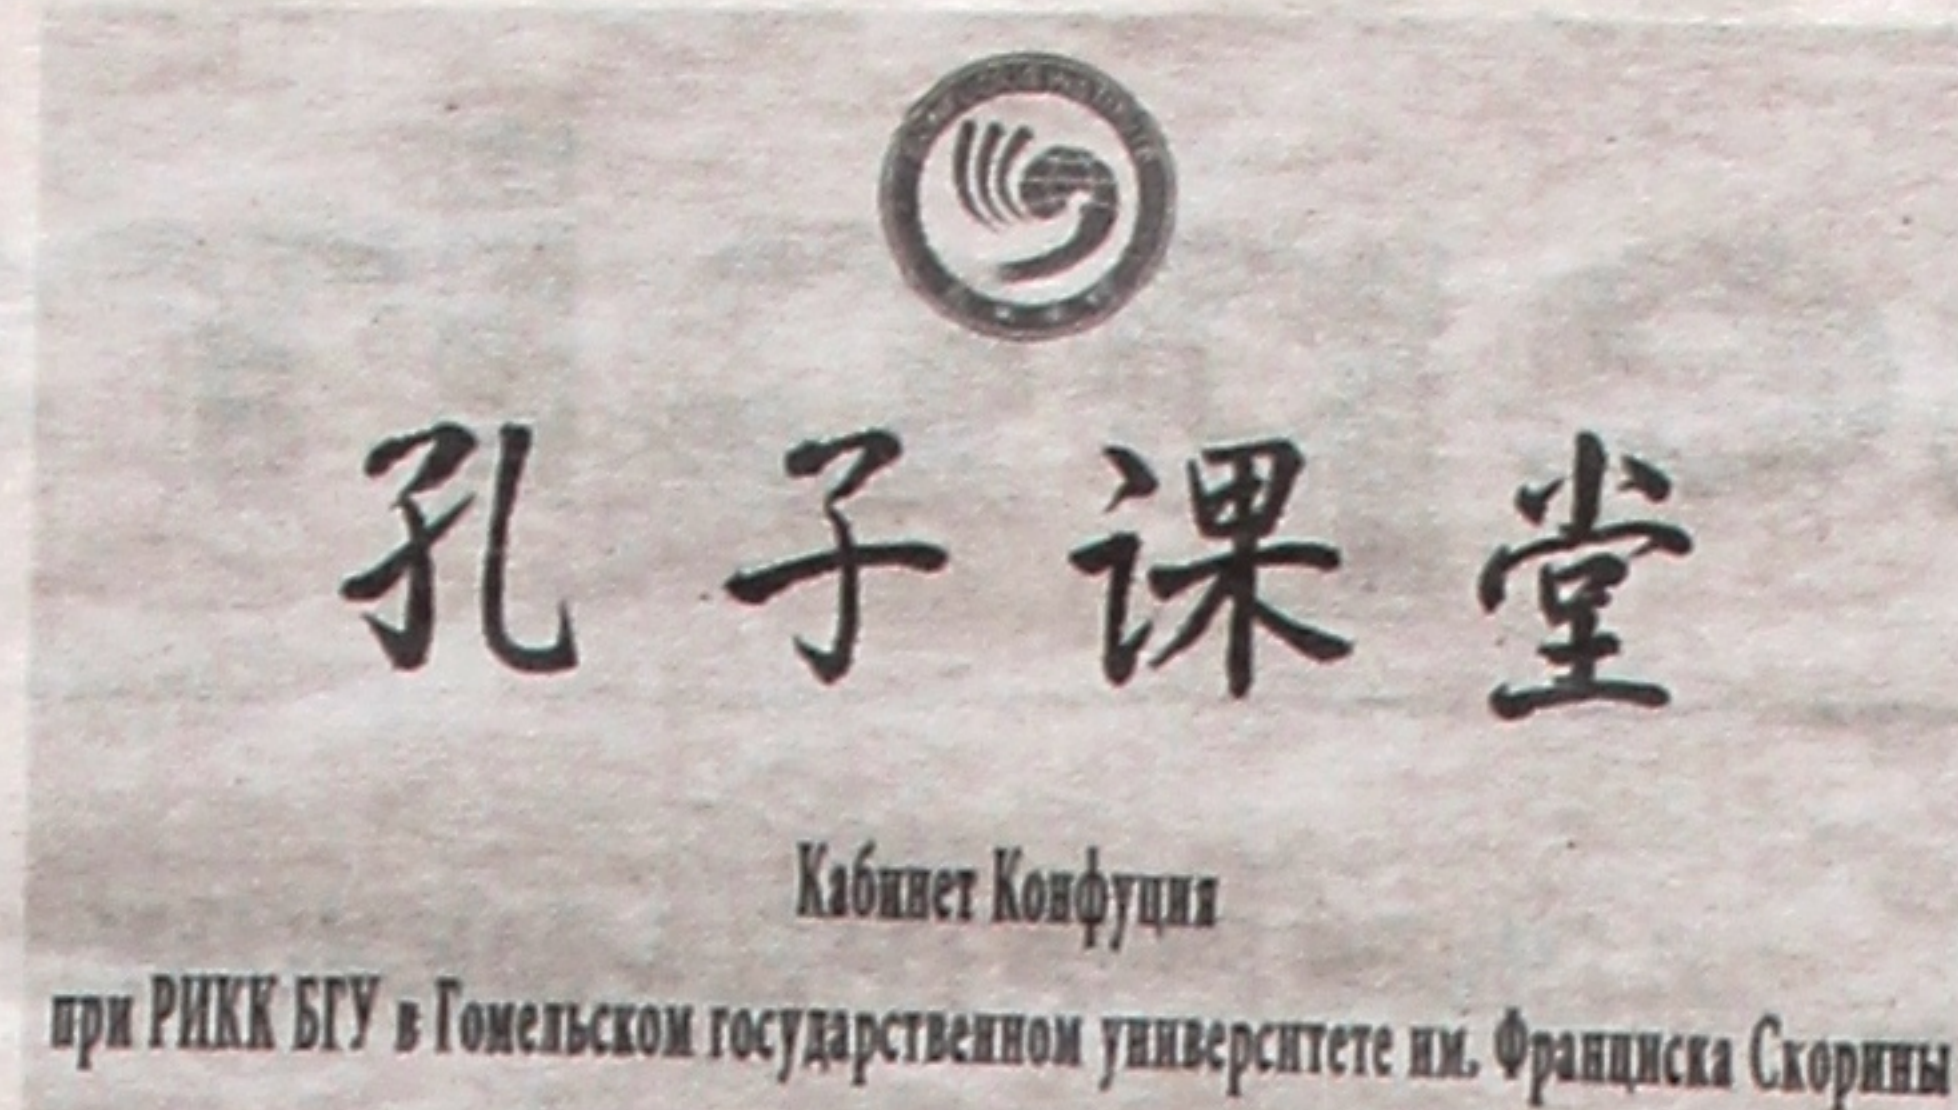 孔子课堂
Кабинет Конфуция
при РИКК БГУ в Гомельском государственном университете им. Франциска Скорины